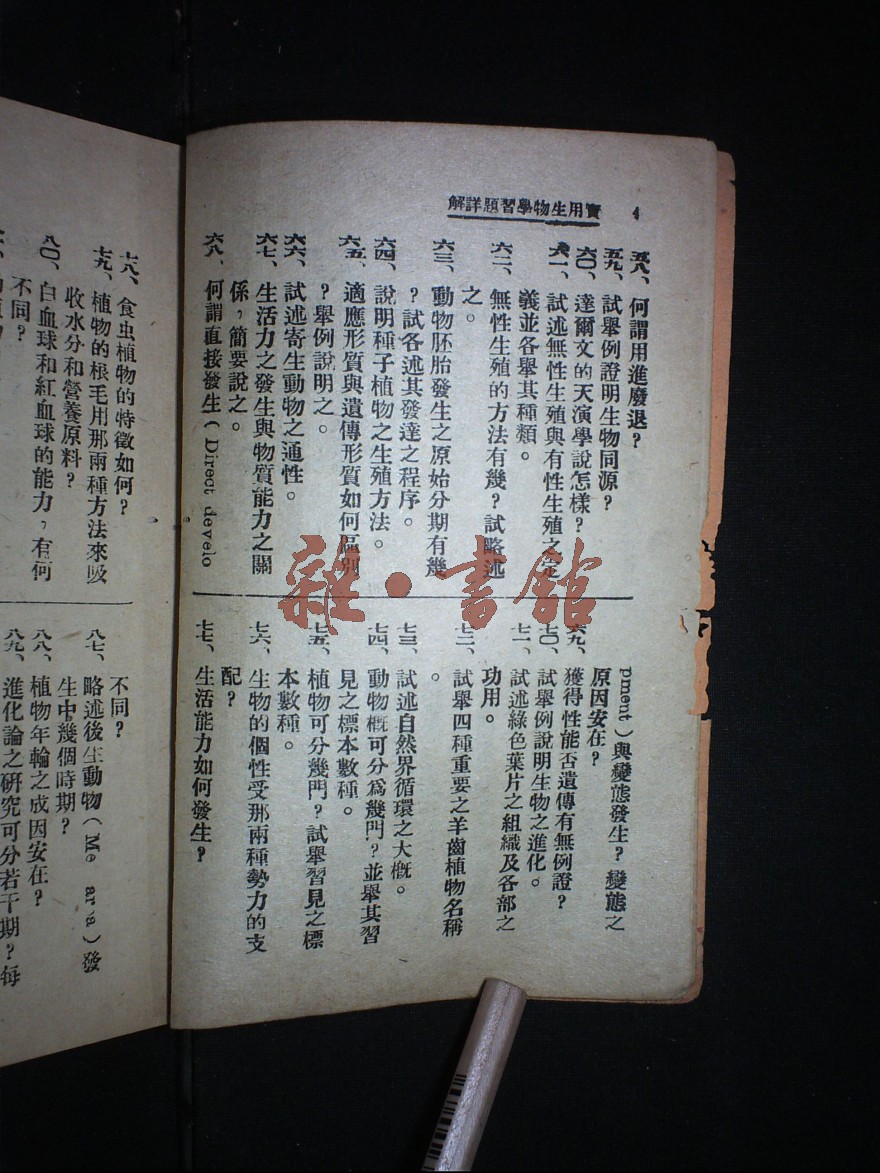 實用生物學習題詳解
4
五八、何謂用進廢退?
五九、試舉例證明生物同源?
六〇、達爾文的天演學說怎樣?
六一、試述無性生殖與有性生殖之定
義並各舉其種類。
六二、無性生殖的方法有幾?試略述
之。
六三、動物胚胎發生之原始分期有幾
?試各述其發達之程序。
六四、說明種子植物之生殖方法。
六五、適應形質與遺傳形質如何區別
?舉例說明之。
六六、試述寄生動物之通性。
六七、生活力之發生與物質能力之關
係,簡要說之。
六八、何謂直接發生(Direct develo
pment)與變態發生?變態之
原因安在?
六九、獲得性能否遺傳有無例證?
七〇、試舉例說明生物之進化。
七一、試述綠色葉片之組織及各部之
功用。
七二、試舉四種重要之羊齒植物名稱
。
七三、試述自然界循環之大概。
七四、動物概可分爲幾門?並舉其習
見之標本數種。
七五、植物可分幾門?試舉習見之標
本數種。
七六、生物的個性受那兩種勢力的支
配?
七七、生活能力如何發生?
七八、食虫植物的特徵如何?
七九、植物的根毛用那兩種方法來吸
收水分和營養原料?
八〇、白血球和紅血球的能力,有何
不同?
不同?
八七、略述後生動物(Me arva)發
生中幾個時期?
八八、植物年輪之成因安在?
八九、進化論之研究可分若干期?每
雜·書館